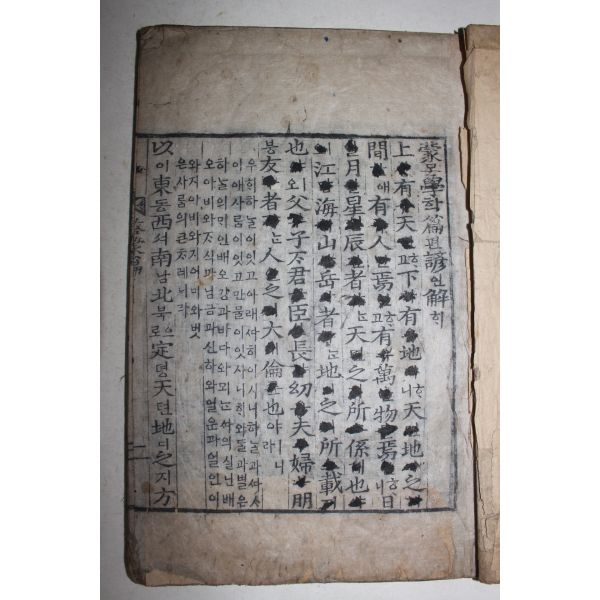 蒙몽學학篇편諺언解ᄒᆡ
上有天고下有地ᄒᆞ니天地之
間애有人焉ᄒᆞ고有萬物焉ᄒᆞ니日
月星辰者ᄂᆞᆫ天之所係也야
江海山岳者ᄂᆞᆫ地之所載
也야ㅣ오父子ᄌᆞ君臣長幼夫婦朋
붕友者ᄂᆞᆫ人之大倫也야ㅣ니라
우희하ᄂᆞᆯ이잇고아래ᄯᅡ히이시니하ᄂᆞᆯ과ᄯᅡᄉᆞ
이애사ᄅᆞᆷ이잇고만믈이잇시니ᄒᆡ와ᄃᆞᆯ과별은
하ᄂᆞᆯ의ᄆᆡ인배오강과바다와뫼ᄂᆞᆫᄯᅡ의실닌배
오아비와ᄌᆞ식과님금과신하와얼운과얼인이
와지아비와지어미와벗
은사ᄅᆞᆷ의큰ᄎᆞ례니라
以이東동西셔南남北북으로定뎡天텬地디之지方